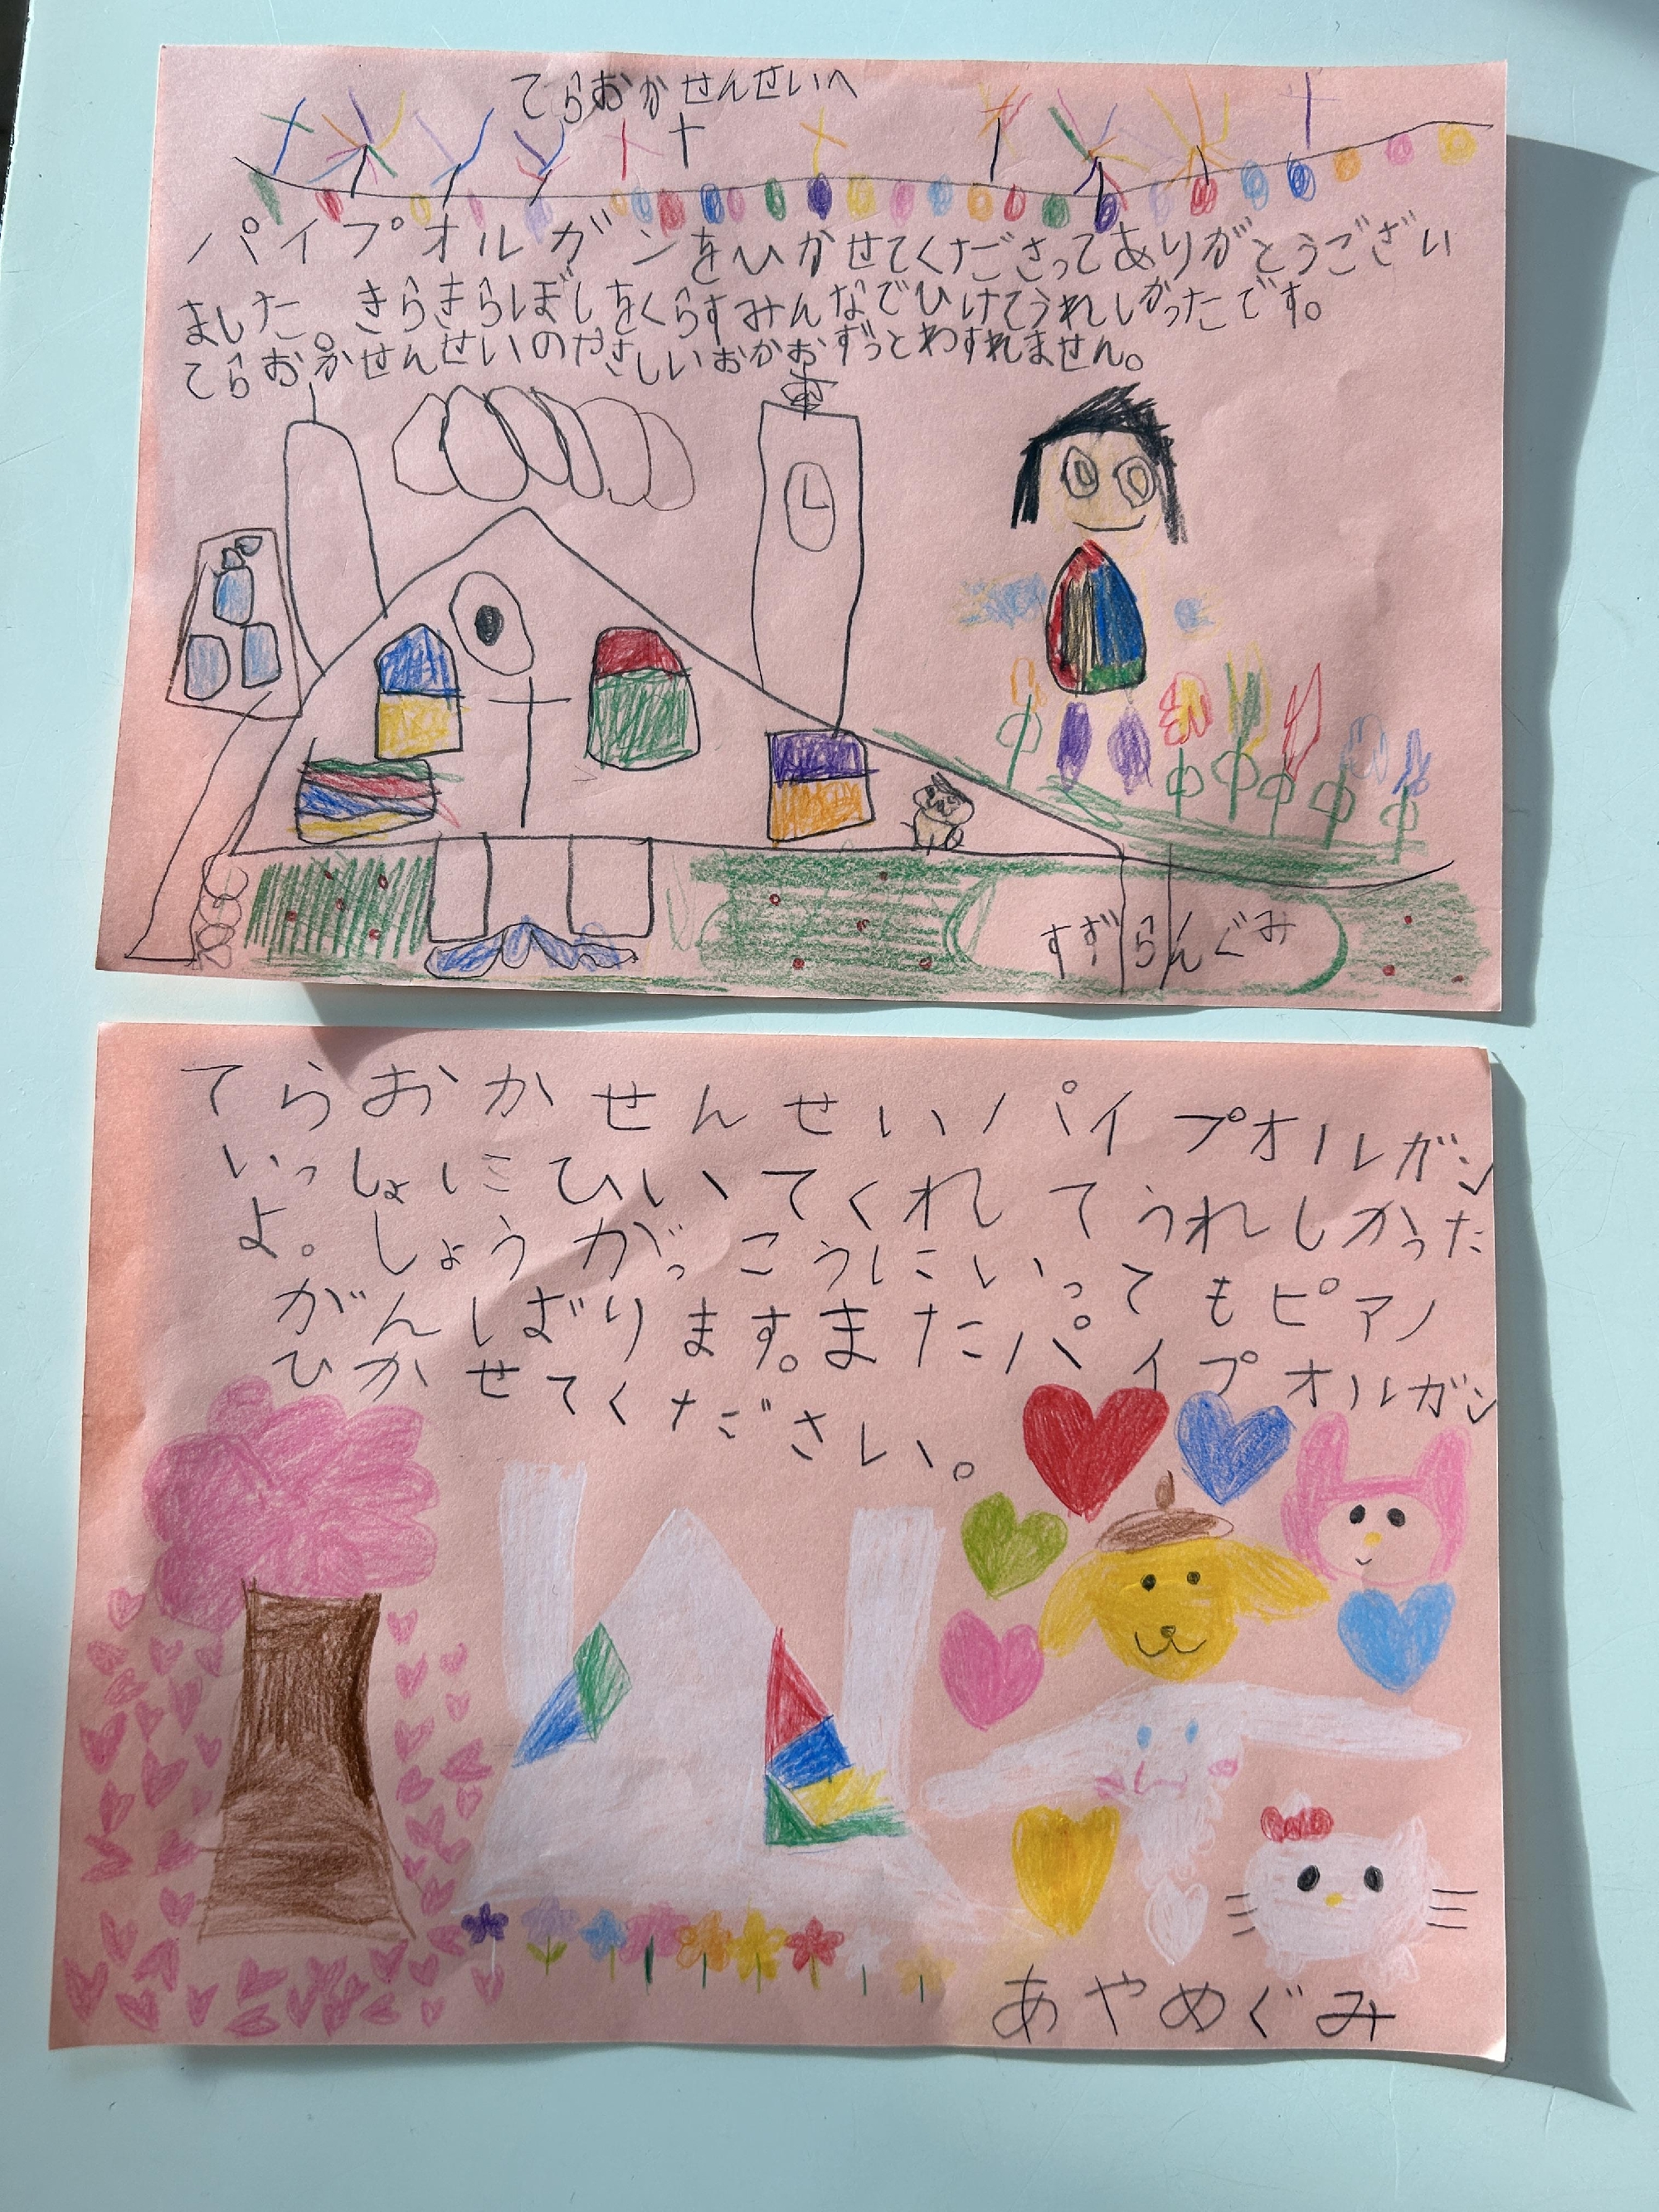 てらおかせんせいへ
パイプオルガンをひかせてくださってありがとうござい
ました。きらきらぼしをくらすみんなでひけてうれしかったです。
てらおかせんせいのやさしいおかおずっとわすれません。
すずらんぐみ
てらおかせんせいパイプオルガン
いっしょにひいてくれてうれしかった
よ。しょうがっこうにいってもピアノ
がんばります。またパイプオルガン
ひかせてください。
あやめぐみ